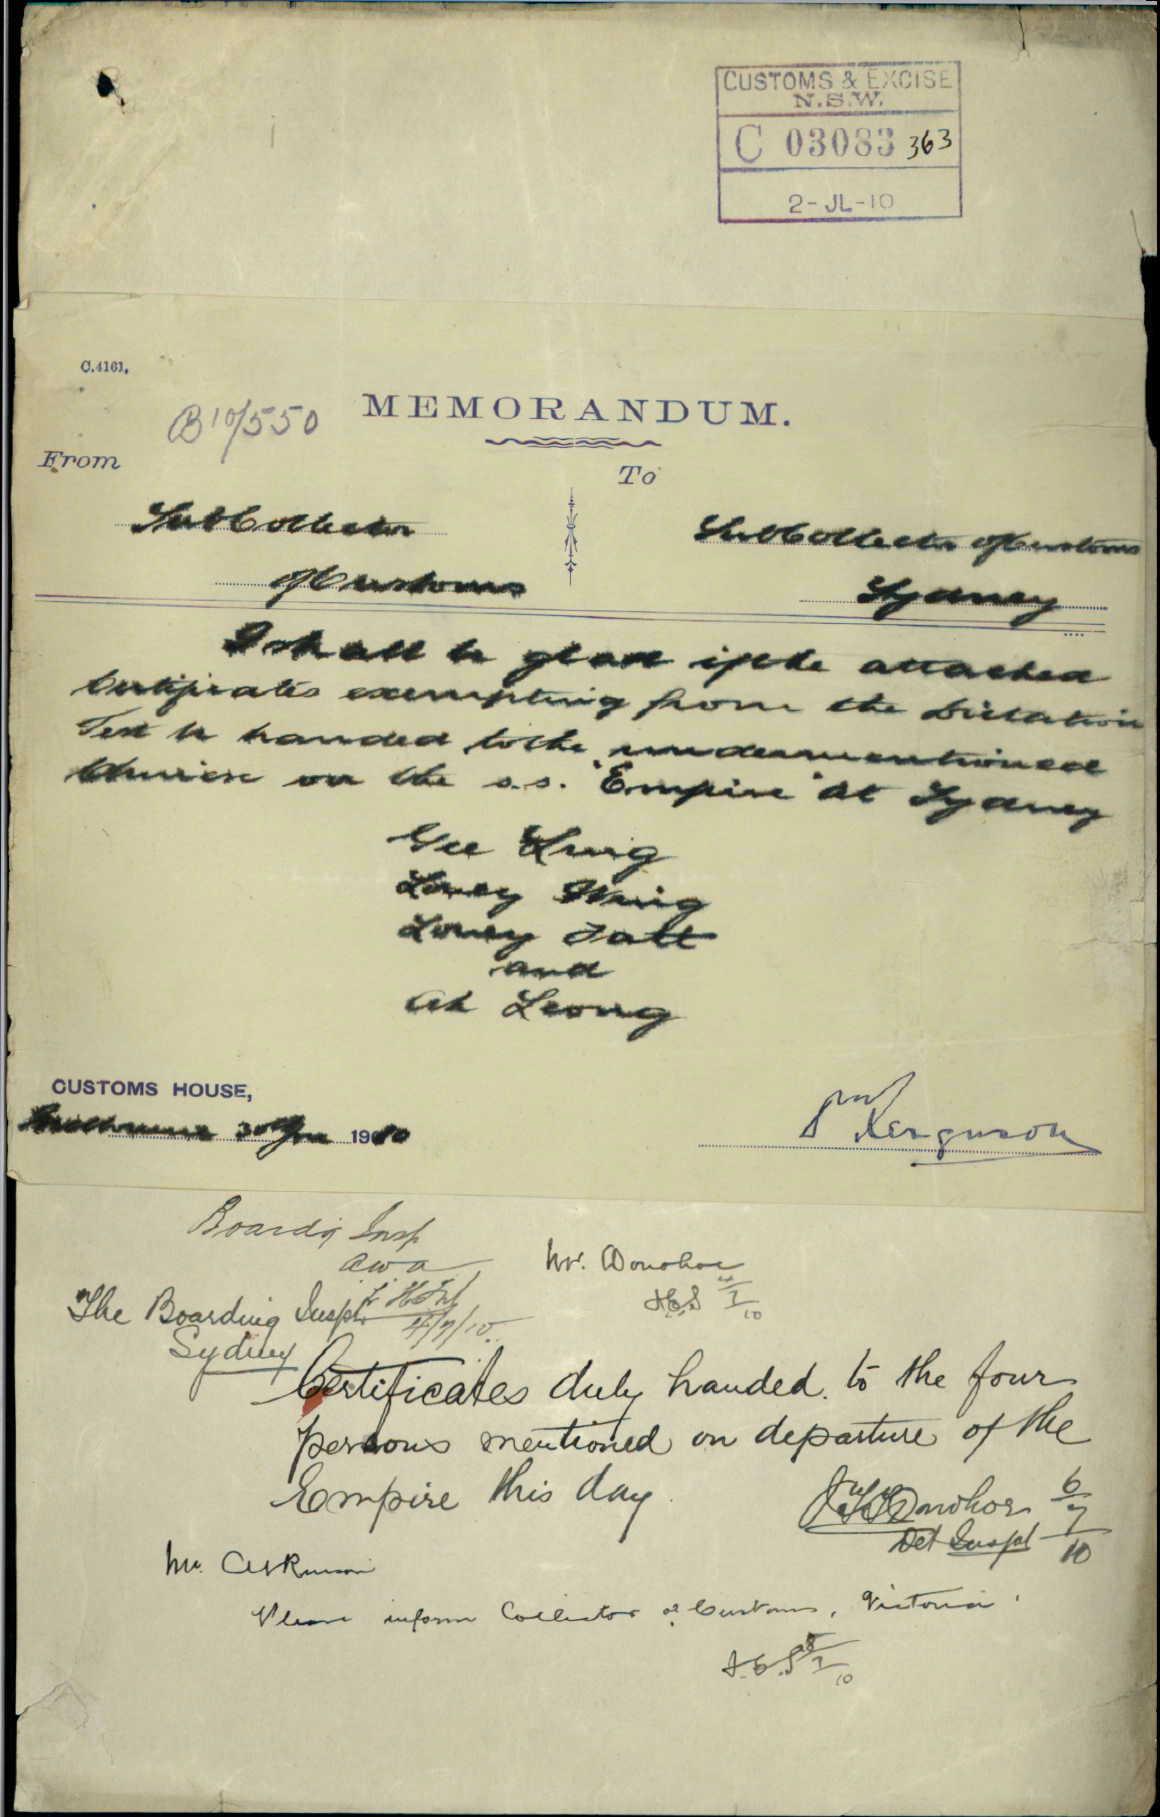 CUSTOMS & EXCISE
N.S.W.
C 03083 363
2-JL-10
C.4161.
B10/550
MEMORANDUM.
From
To
SubCollector
of Customs
SubCollector of Customs
Sydney
I shall be glad if the attached
Certificates exempting from the Dictation
Test be handed to the undermentioned
Chinese on the s.s. "Empire" at Sydney
Gee Kung
Lowey Wing
Lowey Tatt
and
Ah Leong
CUSTOMS HOUSE,
Melbourne 30th June 1910
Ferguson
Boardg Insp
Mr. Donohoe
4/7/10
4/7/10
The Boarding Inspr.
Sydney
Certificates duly handed to the four
persons mentioned on departure of the
Empire this day.
Donohoe 6/7/10
Det Inspr
Mr. Atkinson
Please inform Collector of Customs, Victoria.
8/7/10